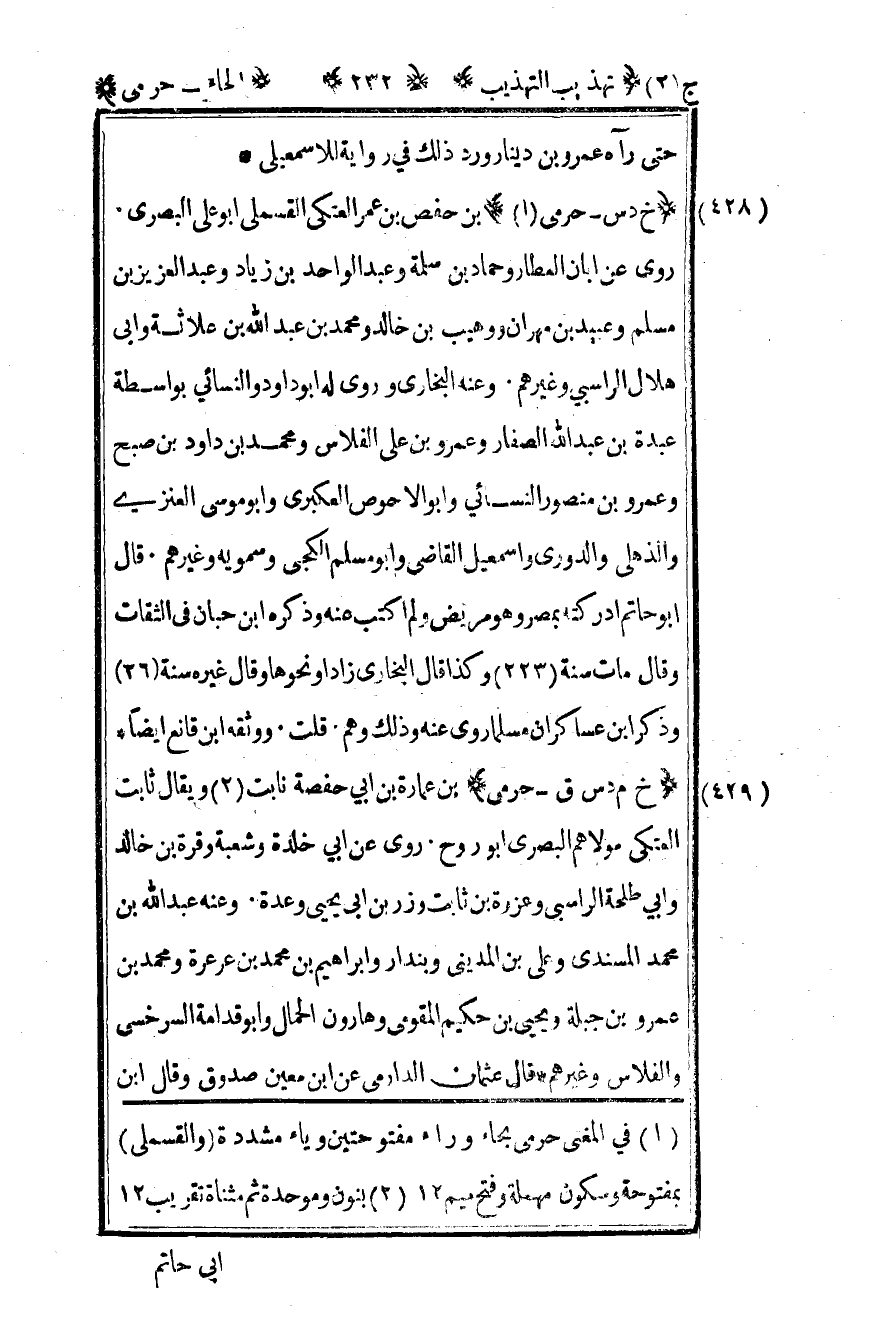 ج (٢) ﴿ تهذيب التهذيب ﴾ ﴿ ٢٣٢ ﴾ ﴿ الحاء ـ حرمى ﴾
حتى رآه عمرو بن دينار ورد ذلك في رواية للاسمعيلى *
(٤٢٨) ﴿ خ د س ـ حرمى (١) ﴾ بن حفص بن عمر العتكى القسملى ابو على البصرى ٠
روى عن ابان العطار وحماد بن سلمة وعبد الواحد بن زياد وعبد العزيز بن
مسلم وعبيد بن مهران ووهيب بن خالد ومحمد بن عبد الله بن علاثة وابى
هلال الراسبي وغيرهم ٠ وعنه البخارى وروى له ابو داود والنسائي بواسطة
عبدة بن عبد الله الصفار وعمرو بن على الفلاس ومحمد بن داود بن صبح
وعمرو بن منصور النسائي وابو الاحوص العكبرى وابو موسى العنزي
والذهلى والدورى واسمعيل القاضى وابو مسلم الكجى وسمويه وغيرهم ٠ قال
ابو حاتم ادركته بمصر وهو مريض ولم اكتب عنه وذكره ابن حبان فى الثقات
وقال مات سنة (٢٢٣) وكذا قال البخارى زاد او نحوها وقال غيره سنة (٢٦)
وذكر ابن عساكر ان مسلما روى عنه وذلك وهم ٠ قلت ٠ ووثقه ابن قانع ايضاً *
(٤٢٩) ﴿ خ م د س ق ـ حرمى ﴾ بن عمارة بن ابي حفصة نابت (٢) ويقال ثابت
العتكى مولاهم البصرى ابو روح ٠ روى عن ابي خلدة وشعبة وقرة بن خالد
وابي طلحة الراسبي وعزرة بن ثابت وزر بن ابى يحيى وعدة ٠ وعنه عبد الله بن
محمد المسندى وعلى بن المدينى وبندار وابراهيم بن محمد بن عرعرة ومحمد بن
عمرو بن جبلة ويحيى بن حكيم المقومى وهارون الحمال وابو قدامة السرخسى
والفلاس وغيرهم * قال عثمان الدارمى عن ابن معين صدوق وقال ابن
(١) في المغنى حرمى بحاء وراء مفتوحتين وياء مشددة (والقسملى)
بمفتوحة وسكون مهملة وفتح ميم ١٢ (٢) بنون وموحدة ثم مثناة تقريب ١٢
ابي حاتم